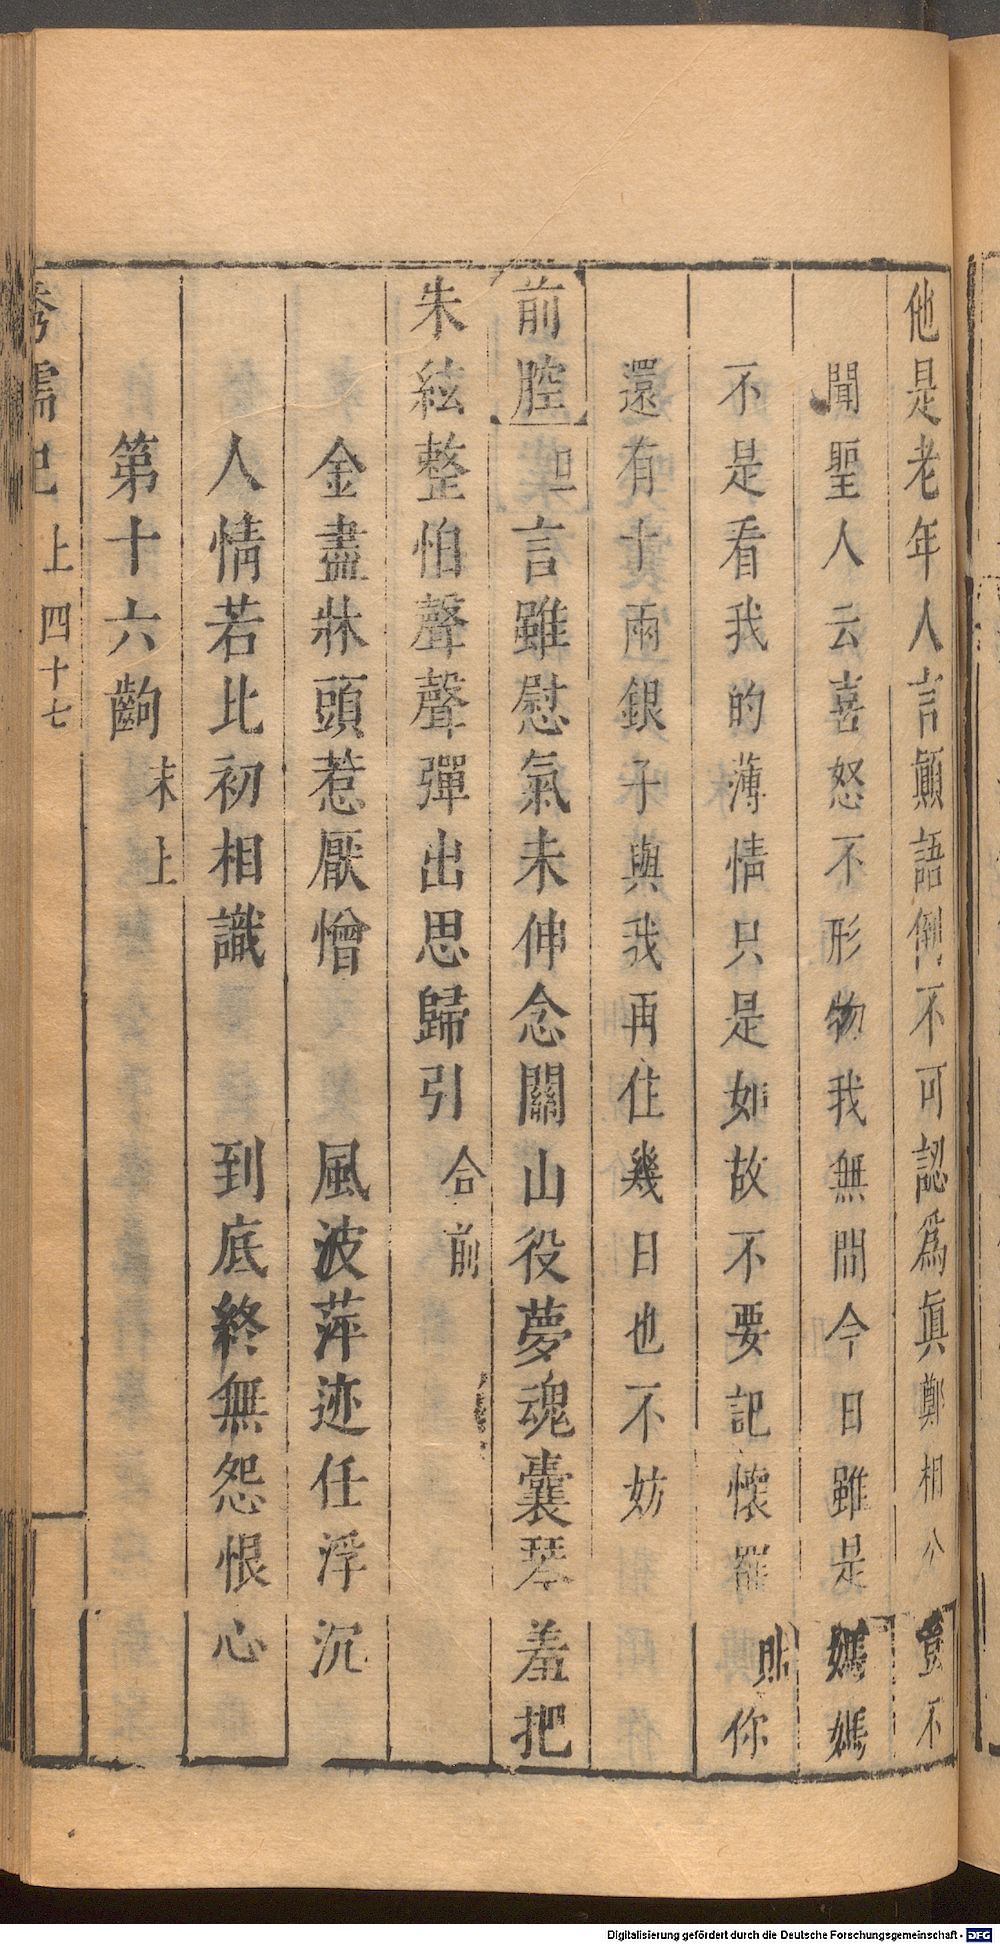 他是老年人言顛語倒不可認爲眞鄭相公豈不
聞聖人云喜怒不形物我無間今日雖是媽媽
不是看我的薄情只是如故不要記懷罷貼你
還有十兩銀子與我再住幾日也不妨
前腔旦言雖慰氣未伸念關山役夢魂囊琴羞把
朱絃整怕聲聲彈出思歸引合前
金盡牀頭惹厭憎 風波萍迹任浮沉
人情若比初相識 到底終無怨恨心
第十六齣末上
秀襦記 上 四十七
Digitalisierung gefördert durch die Deutsche Forschungsgemeinschaft - DFG